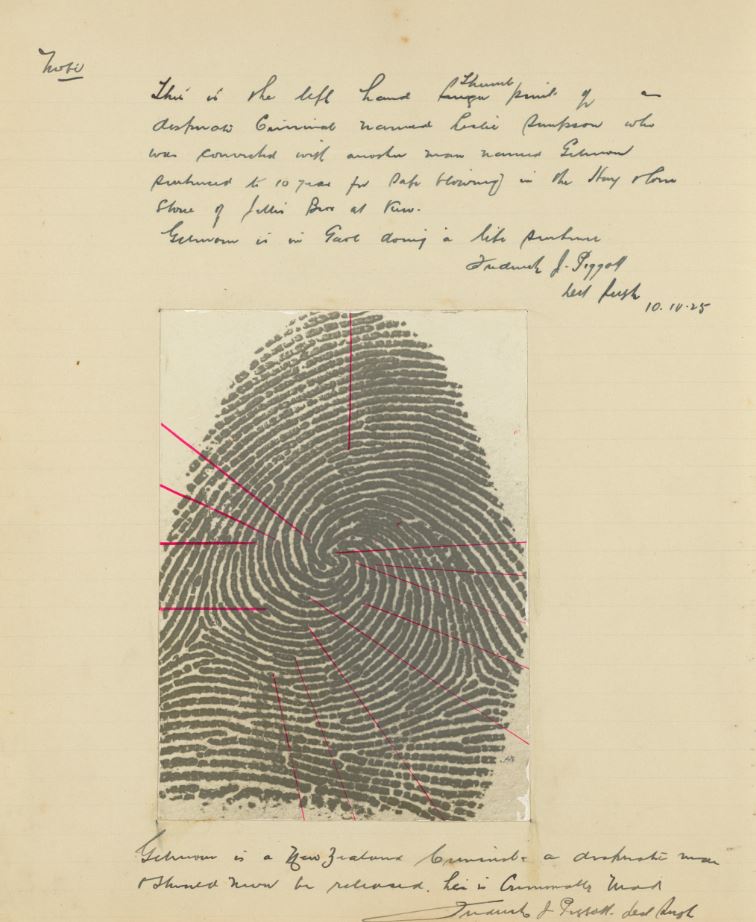 Note
This is the left hand Thumb print of a
desperate Criminal named Leslie Simpson who
was convicted with another man named Gilmour
sentenced to 10 years for Safe blowing in the
Store of Bros at Kew.
Gilmour is in Gaol doing a life sentence
Frederick J. Piggott
Det Sergt
10.10.25
Gilmour is a New Zealand Criminal a desperate man
& should never be released. he is Criminally Mad
Frederick J Piggott. Det Sergt